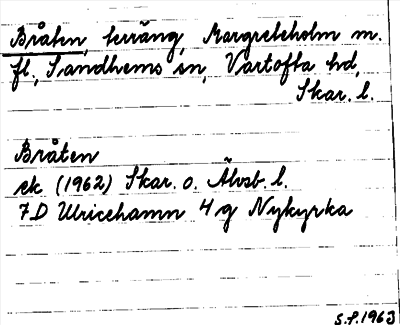 Bråten, terräng, Margreteholm m.
fl., Sandhems sn, Vartofta hd,
Skar. l.
Bråten
ek (1962) Skar. o. Älvsb. l.
7D Ulricehamn 4g Nykyrka
S.P. 1963